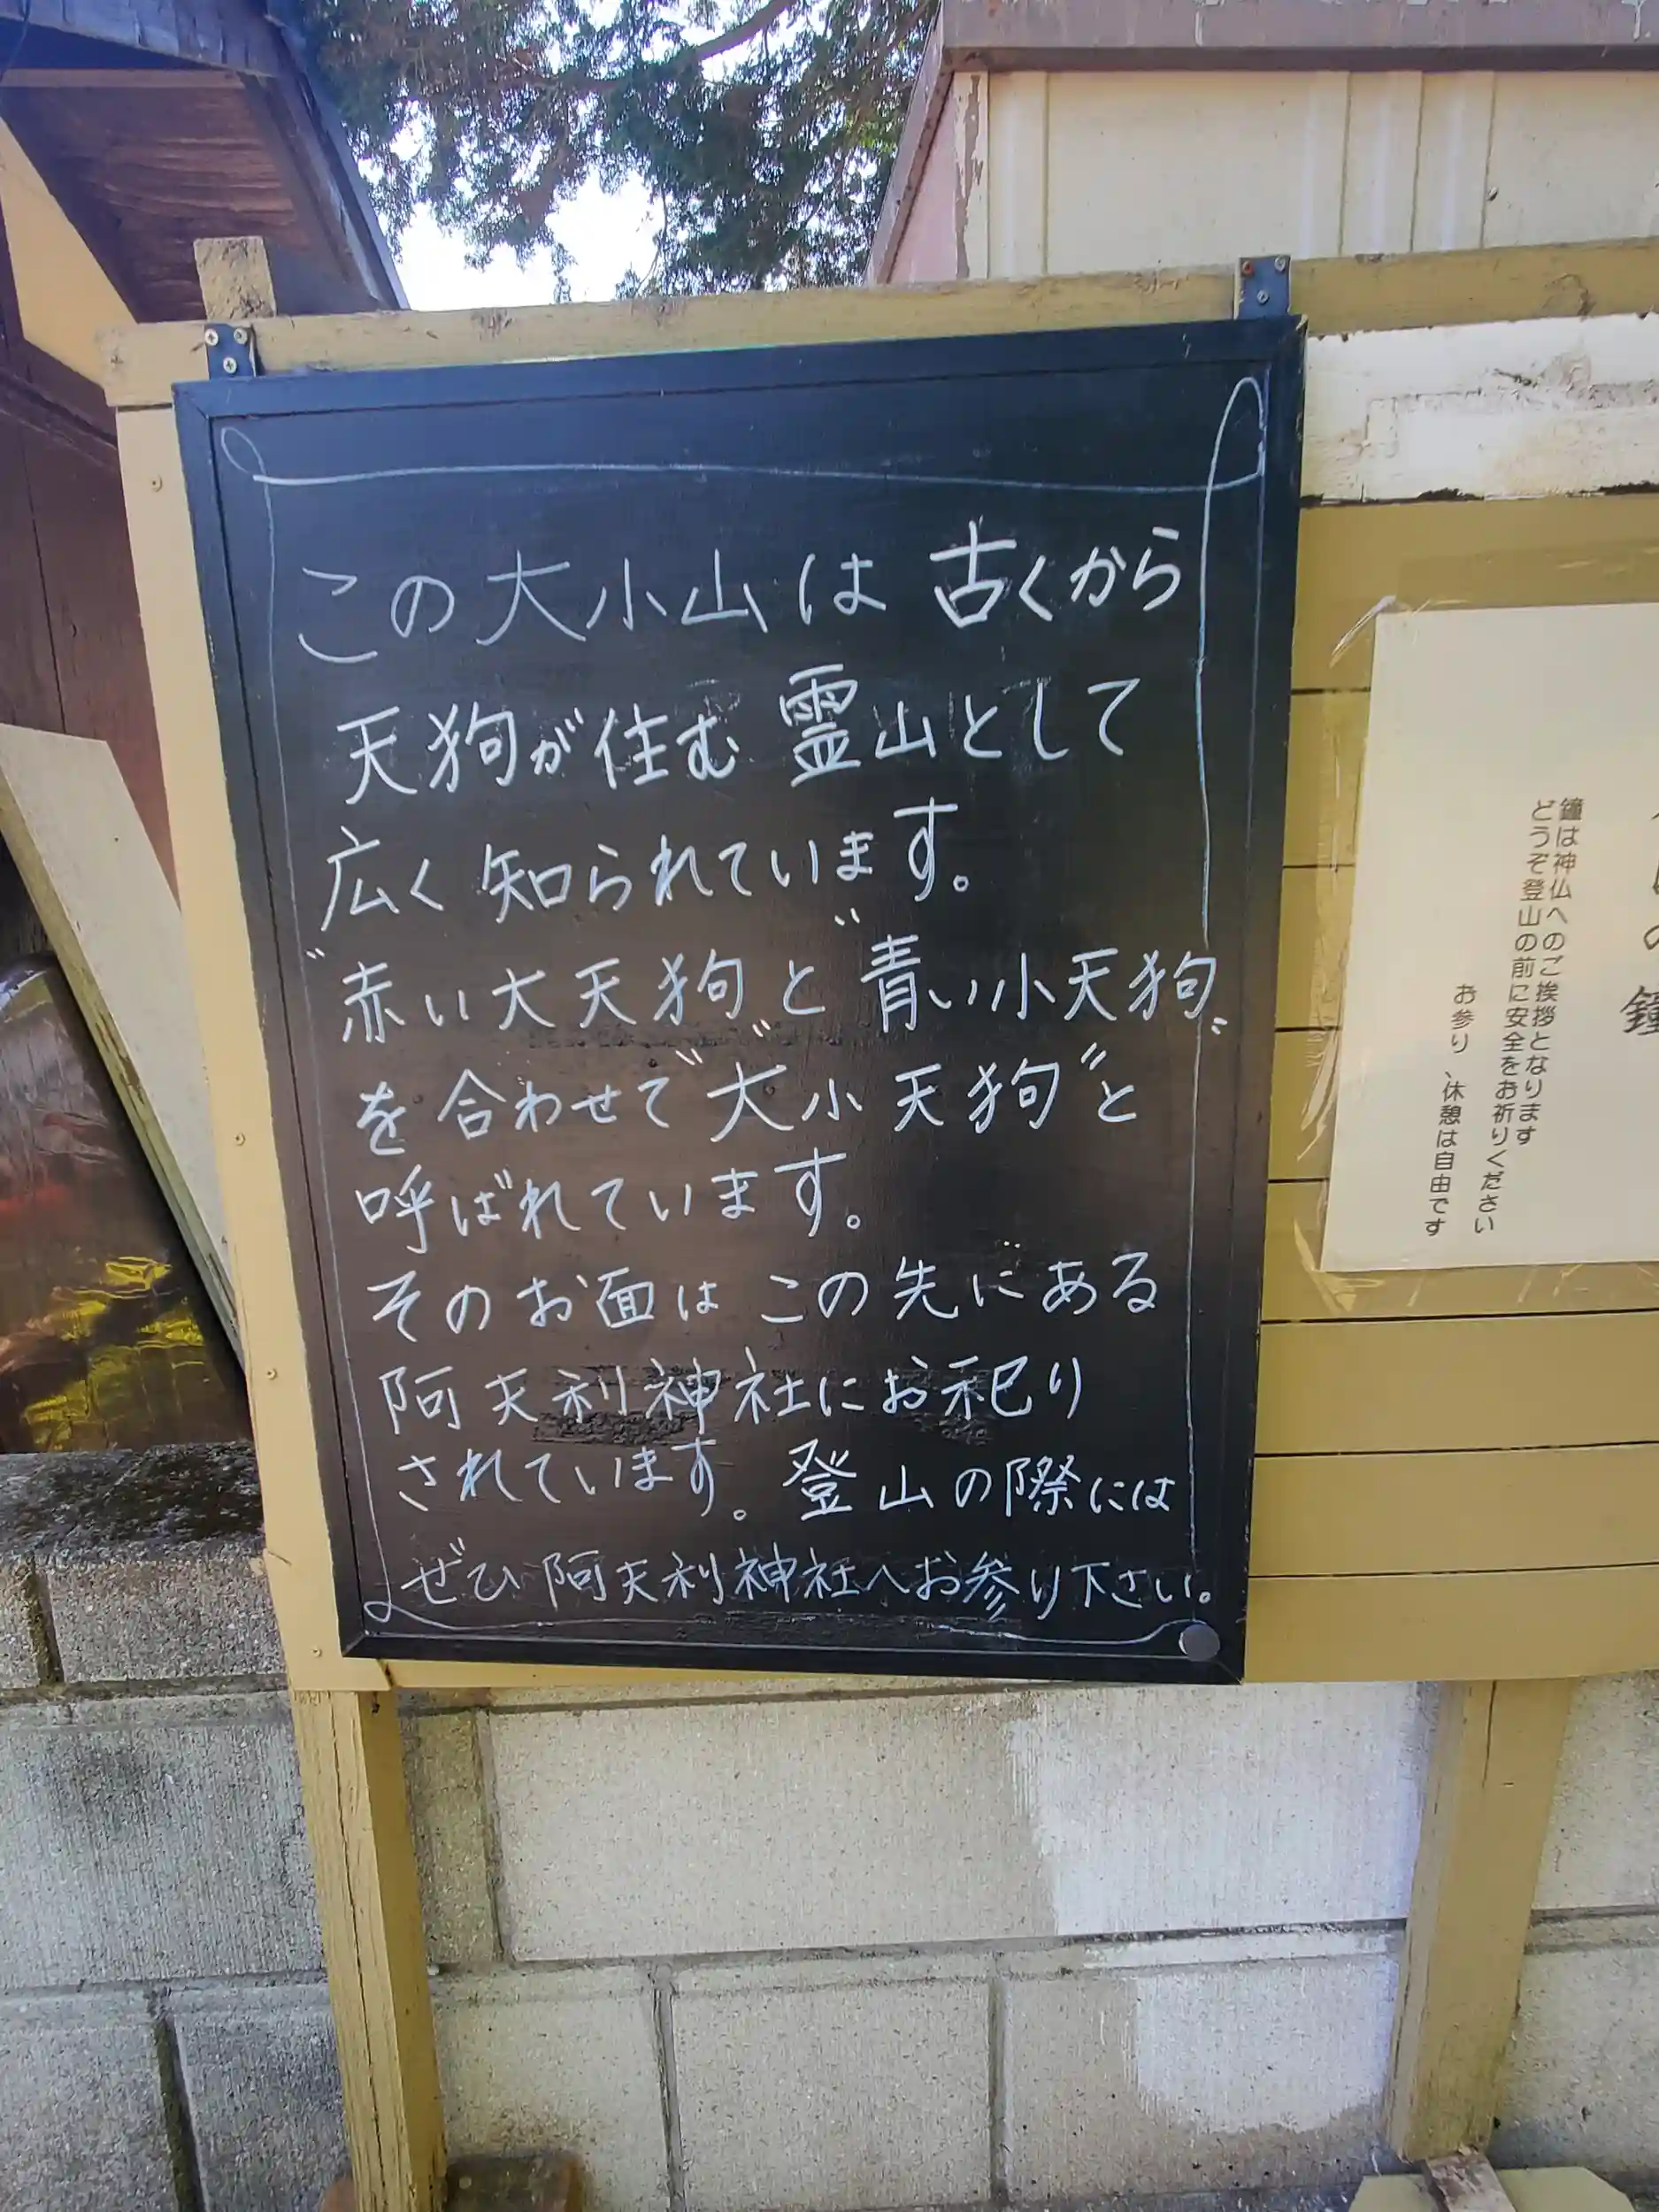 この大小山は古くから
天狗が住む霊山として
広く知られています。
"赤い大天狗"と"青い小天狗"
を合わせて"大小天狗"と
呼ばれています。
そのお面はこの先にある
阿夫利神社にお祀り
されています。登山の際には
ぜひ阿夫利神社へお参り下さい。
の鐘
鐘は神仏へのご挨拶となります
どうぞ登山の前に安全をお祈りください
お参り、休憩は自由です